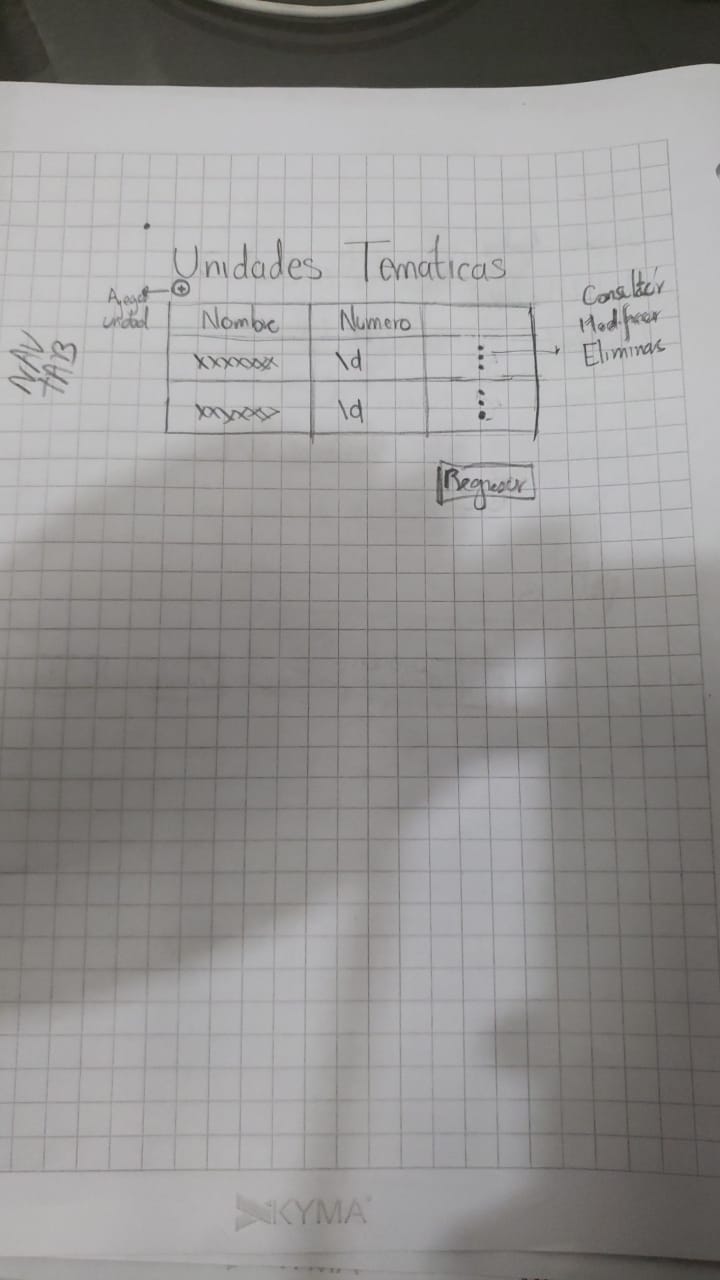 Unidades Tematicas
Agregar
unidad
Nombre
Numero
xxxxxxx
Id
xxxxxxx
Id
Consultar
Modificar
Eliminar
NAV
TAB
Regresar
KYMA